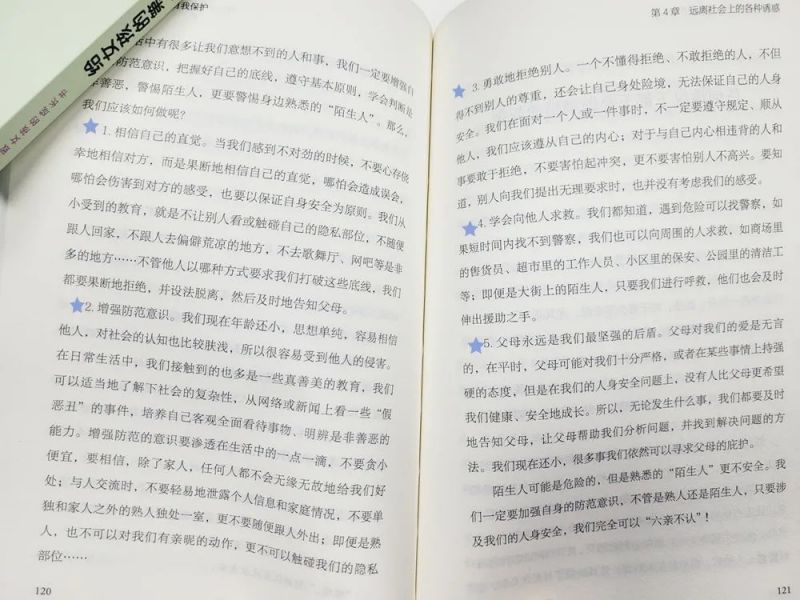 给女孩的第
自我保护
活中有很多让我们意想不到的人和事，我们一定要增强自
防范意识，把握好自己的底线，遵守基本原则，学会判断是
非善恶，警惕陌生人，更要警惕身边熟悉的“陌生人”。那么，
我们应该如何做呢？
1. 相信自己的直觉。当我们感到不对劲的时候，不要心存侥
幸地相信对方，而是果断地相信自己的直觉，哪怕会造成误会，
哪怕会伤害到对方的感受，也要以保证自身安全为原则。我们从
小受到的教育，就是不让别人看或触碰自己的隐私部位，不随便
跟人回家，不跟人去偏僻荒凉的地方，不去歌舞厅、网吧等是非
多的地方……不管他人以哪种方式要求我们打破这些底线，我们
都要果断地拒绝，并设法脱离，然后及时地告知父母。
2. 增强防范意识。我们现在年龄还小，思想单纯，容易相信
他人，对社会的认知也比较肤浅，所以很容易受到他人的侵害。
在日常生活中，我们接触到的也多是一些真善美的教育，我们
可以适当地了解下社会的复杂性，从网络或新闻上看一些“假
恶丑”的事件，培养自己客观全面看待事物、明辨是非善恶的
能力。增强防范的意识要渗透在生活中的一点一滴，不要贪小
便宜，要相信，除了家人，任何人都不会无缘无故地给我们好
处；与人交流时，不要轻易地泄露个人信息和家庭情况，不要单
独和家人之外的熟人独处一室，更不要随便跟人外出；即便是熟
人，也不可以对我们有亲昵的动作，更不可以触碰我们的隐私
部位……
120
第 4 章 远离社会上的各种诱惑
3. 勇敢地拒绝别人。一个不懂得拒绝、不敢拒绝的人，不但
得不到别人的尊重，还会让自己身处险境，无法保证自己的人身
安全。我们在面对一个人或一件事时，不一定要遵守规定、顺从
他人，我们应该遵从自己的内心；对于与自己内心相违背的人和
事要敢于拒绝，不要害怕起冲突，更不要害怕别人不高兴。要知
道，别人向我们提出无理要求时，也并没有考虑我们的感受。
4. 学会向他人求救。我们都知道，遇到危险可以找警察，如
果短时间内找不到警察，我们也可以向周围的人求救，如商场里
的售货员、超市里的工作人员、小区里的保安、公园里的清洁工
等；即便是大街上的陌生人，只要我们进行呼救，他们也会及时
伸出援助之手。
5. 父母永远是我们最坚强的后盾。父母对我们的爱是无言
的，在平时，父母可能对我们十分严格，或者在某些事情上持强
硬的态度，但是在我们的人身安全问题上，没有人比父母更希望
我们健康、安全地成长。所以，无论发生什么事，我们都要及时
地告知父母，让父母帮助我们分析问题，并找到解决问题的方
法。我们现在还小，很多事我们依然可以寻求父母的庇护。
陌生人可能是危险的，但是熟悉的“陌生人”更不安全。我
们一定要加强自身的防范意识，不管是熟人还是陌生人，只要涉
及我们的人身安全，我们完全可以“六亲不认”！
121